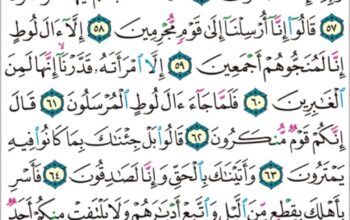 ٥٧ قَالُوٓا۟ إِنَّآ أُرْسِلْنَآ إِلَىٰ قَوْمٍ مُّجْرِمِينَ ٥٨ إِلَّآ ءَالَ لُوطٍ
إِنَّا لَمُنَجُّوهُمْ أَجْمَعِينَ ٥٩ إِلَّا ٱمْرَأَتَهُۥ قَدَّرْنَآ إِنَّهَا لَمِنَ
ٱلْغَٰبِرِينَ ٦٠ فَلَمَّا جَآءَ ءَالَ لُوطٍ ٱلْمُرْسَلُونَ ٦١ قَالَ
إِنَّكُمْ قَوْمٌ مُّنكَرُونَ ٦٢ قَالُوا۟ بَلْ جِئْنَٰكَ بِمَا كَانُوا۟ فِيهِ
يَمْتَرُونَ ٦٣ وَأَتَيْنَٰكَ بِٱلْحَقِّ وَإِنَّا لَصَٰدِقُونَ ٦٤ فَأَسْرِ
بِأَهْلِكَ بِقِطْعٍ مِّنَ ٱلَّيْلِ وَٱتَّبِعْ أَدْبَٰرَهُمْ وَلَا يَلْتَفِتْ مِنكُمْ أَحَدٌ